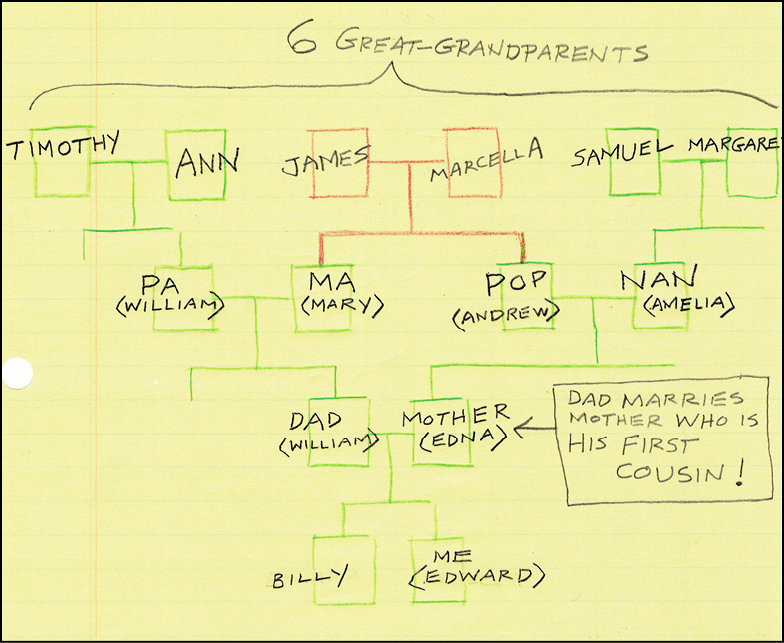 6 GREAT-GRANDPARENTS
TIMOTHY
ANN
JAMES
MARCELLA
SAMUEL
MARGARE
PA
(WILLIAM)
MA
(MARY)
POP
(ANDREW)
NAN
(AMELIA)
DAD
(WILLIAM)
MOTHER
(EDNA)
DAD MARRIES
MOTHER WHO IS
HIS FIRST
COUSIN!
BILLY
ME
(EDWARD)